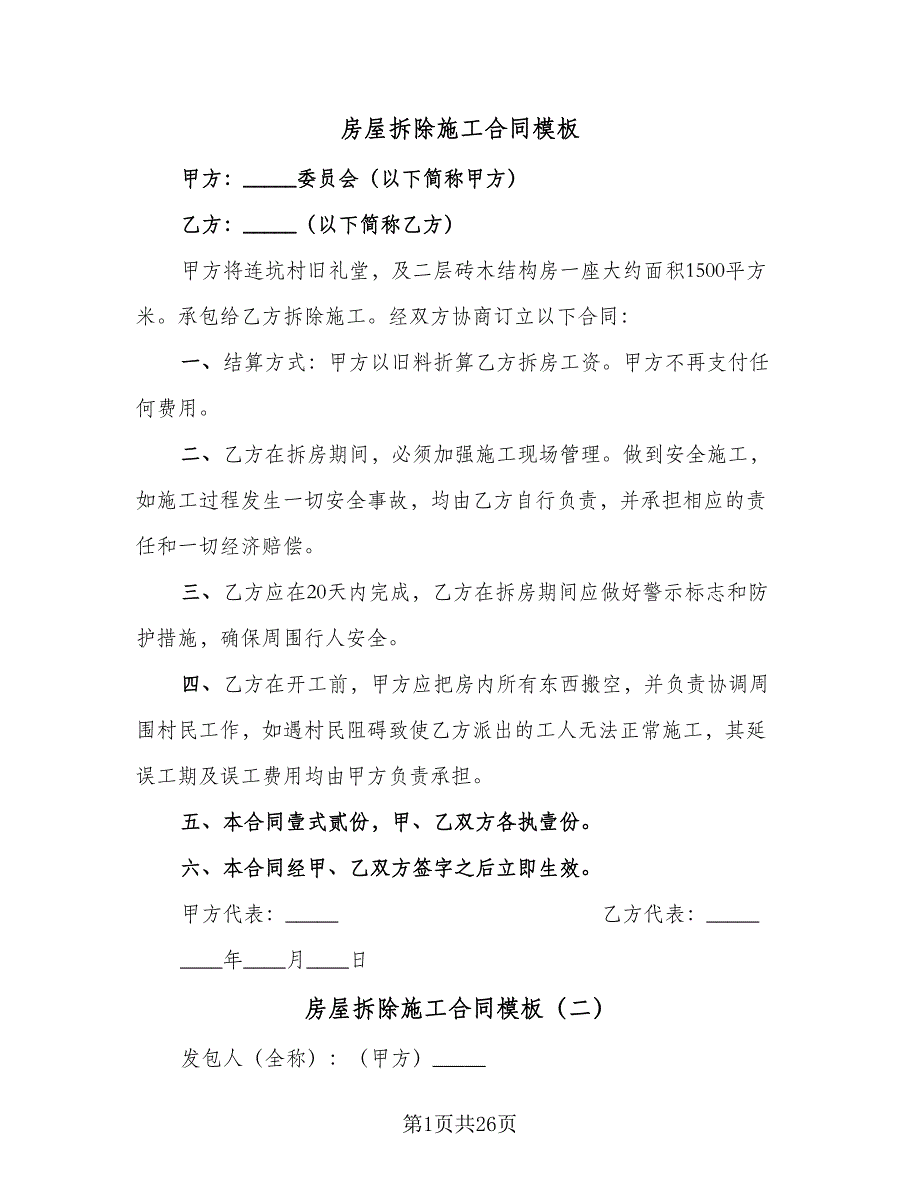 房屋拆除施工合同模板
甲方：_____委员会（以下简称甲方）
乙方：_____（以下简称乙方）
甲方将连坑村旧礼堂，及二层砖木结构房一座大约面积1500平方
米。承包给乙方拆除施工。经双方协商订立以下合同：
一、结算方式：甲方以旧料折算乙方拆房工资。甲方不再支付任
何费用。
二、乙方在拆房期间，必须加强施工现场管理。做到安全施工，
如施工过程发生一切安全事故，均由乙方自行负责，并承担相应的责
任和一切经济赔偿。
三、乙方应在20天内完成，乙方在拆房期间应做好警示标志和防
护措施，确保周围行人安全。
四、乙方在开工前，甲方应把房内所有东西搬空，并负责协调周
围村民工作，如遇村民阻碍致使乙方派出的工人无法正常施工，其延
误工期及误工费用均由甲方负责承担。
五、本合同壹式贰份，甲、乙双方各执壹份。
六、本合同经甲、乙双方签字之后立即生效。
甲方代表：_____ 乙方代表：_____
____年____月____日
房屋拆除施工合同模板（二）
发包人（全称）：（甲方）_____
第1页共26页